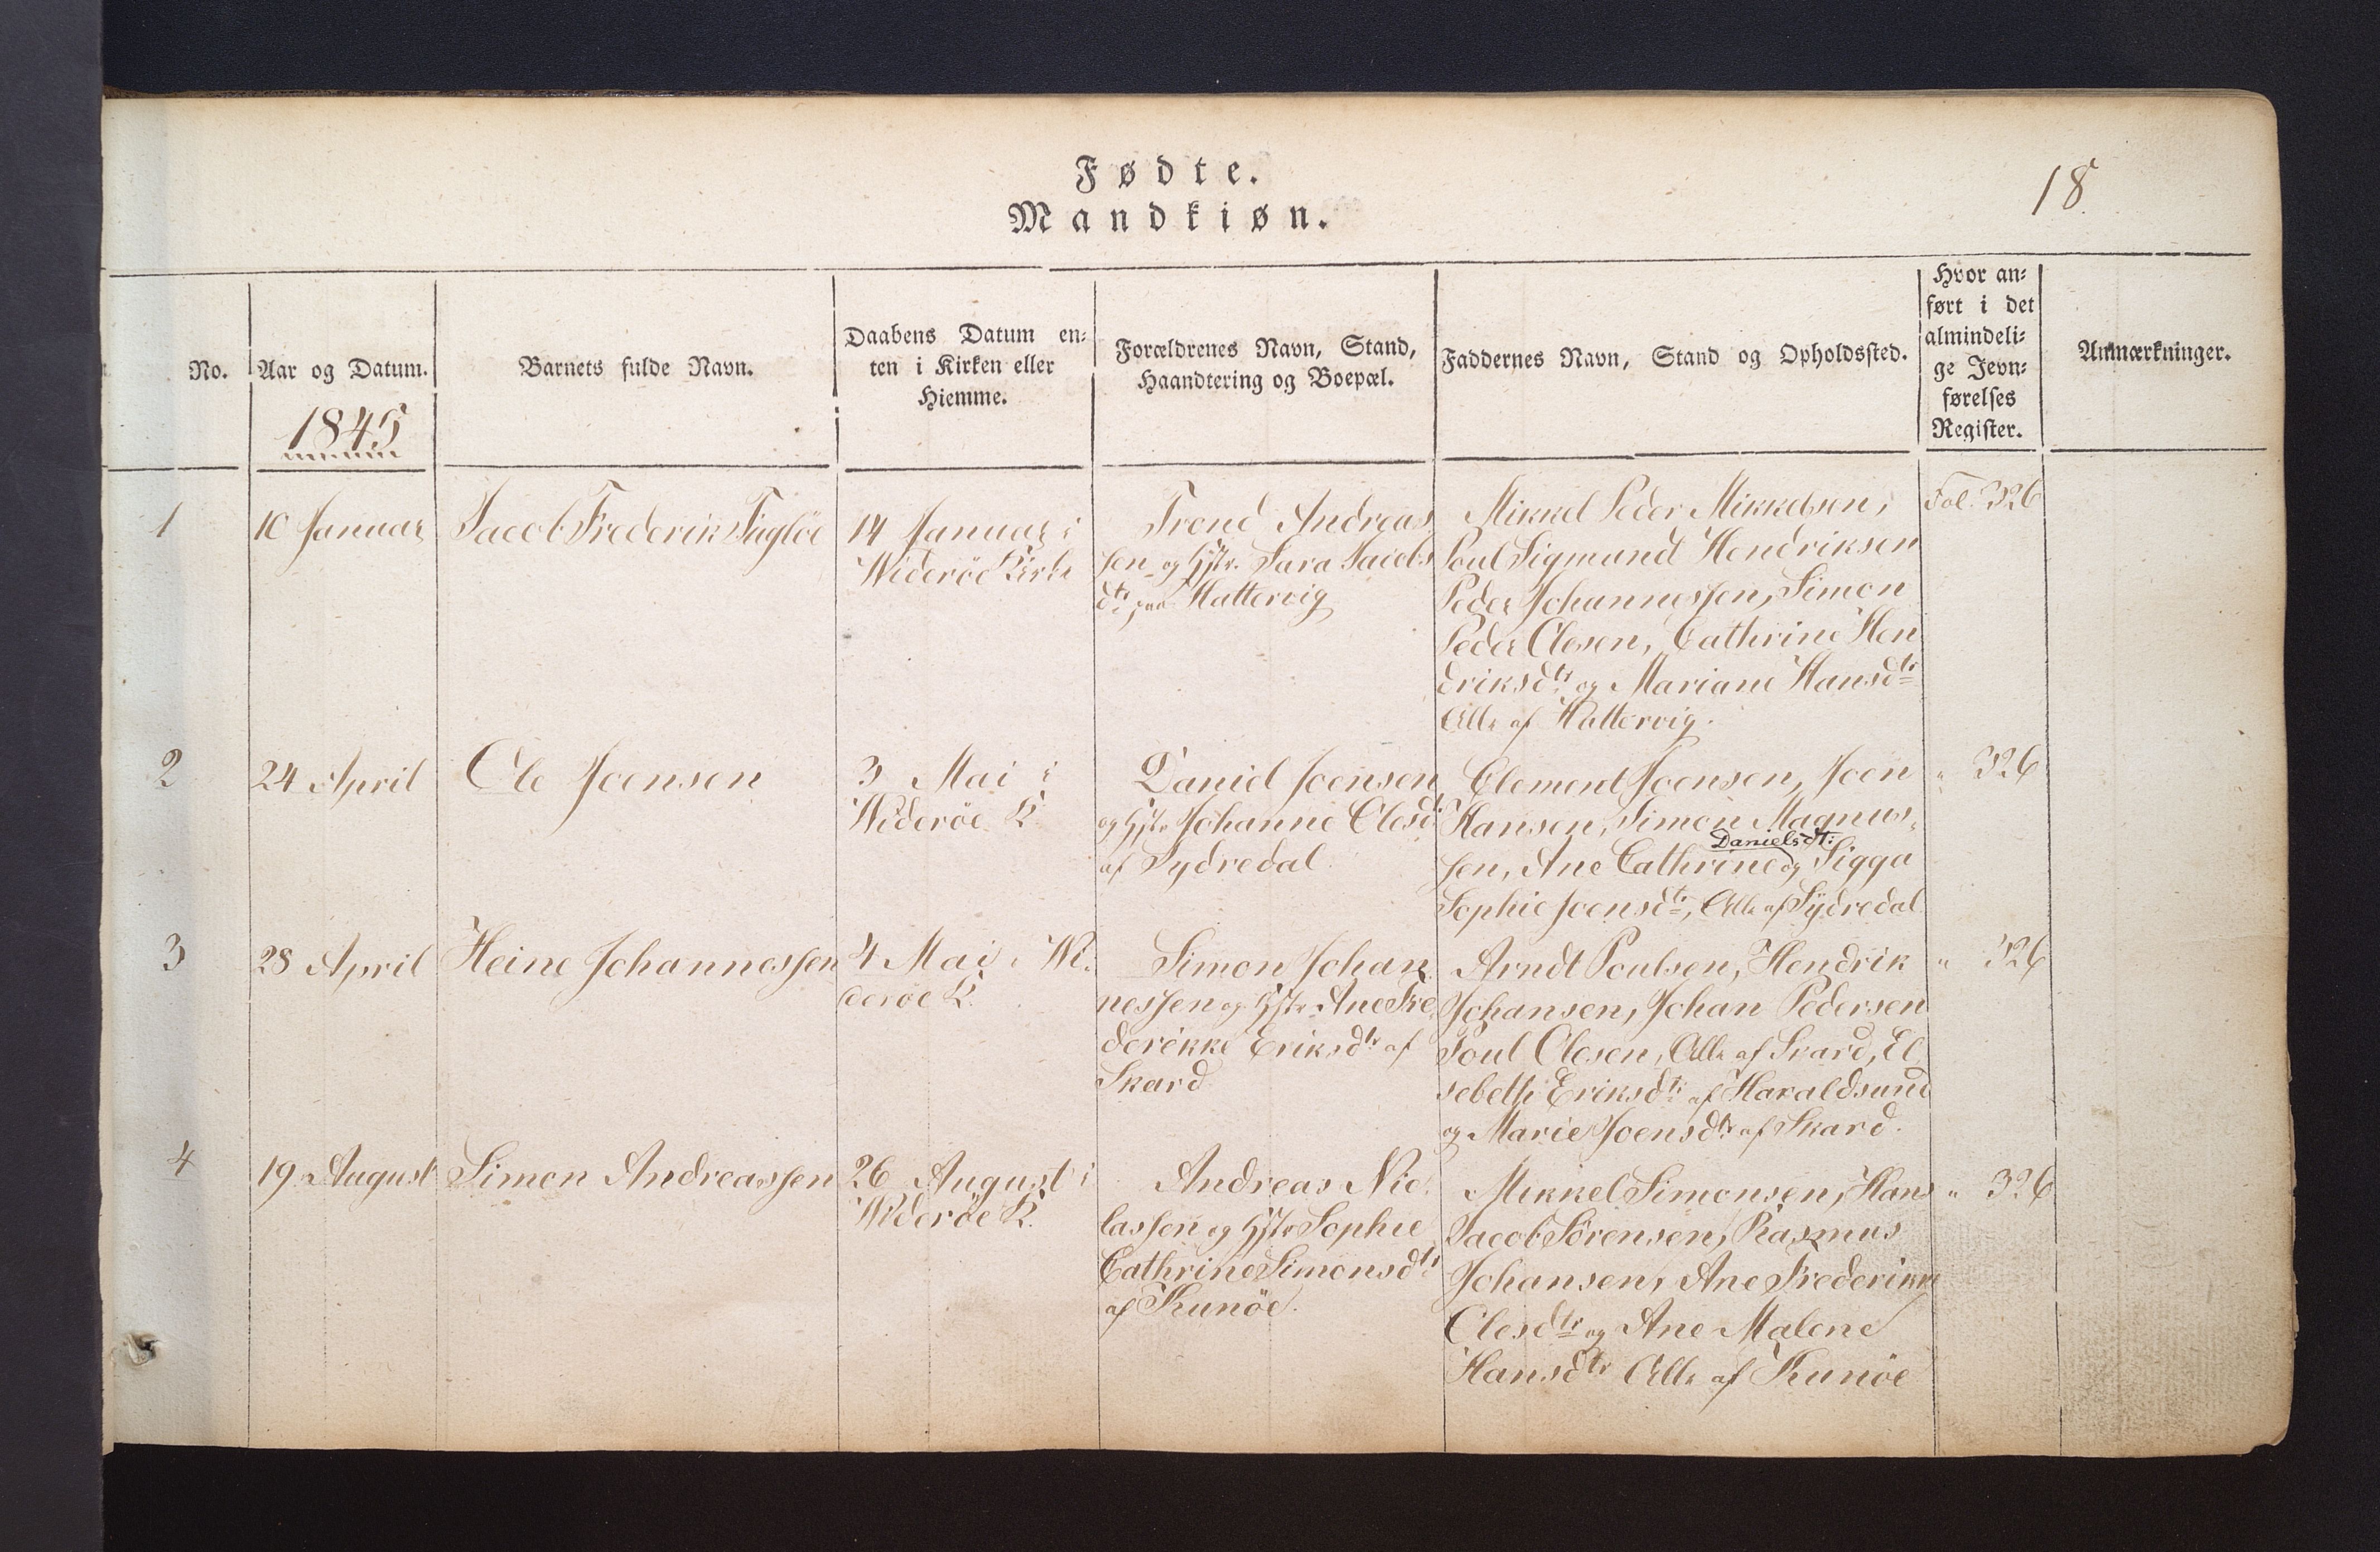 Fødte.
Mandkiøn.
18.
No.
Aar og Datum.
1845
Barnets fulde Navn.
Daabens Datum en-
ten i Kirken eller
Hiemme.
Forældrenes Navn, Stand,
Haandtering og Boepæl.
Faddernes Navn, Stand og Opholdssted.
Hvor an-
ført i det
almindeli-
ge Jevn-
førelses
Register.
Anmærkninger.
1
10 Januar
Jacob Frederik Fugløe
14 Januar i
Widerøe Kirke
Trond Andreas
sen og Hstr. Sara Jacobs
dtr paa Hattervig
Mikkel Peder Mikkelsen,
Poul Sigmund Hendriksen
Peder Johannessen, Simon
Peder Olesen, Cathrine Hen
driksdtr og Mariane Hansdtr
Alle af Hattervig.
Fol. 326
2
24 April
Ole Joensen
3 Mai i
Widerøe K.
Daniel Joensen
og Hstr Johanne Olesdtr
af Sydredal.
Clement Joensen, Joen
Hansen, Simon Magnus-
Danielsdt:
sen, Ane Cathrine og Sigga
Sophie Joensdtr, Alle af Sydredal
" 326
3
28 April
Heine Johannessen
4 Mai i Wi-
derøe K.
Simon Johan
nessen og Hstr Ane Fre
derikke Eriksdtr af
Skard
Arndt Poulsen, Hendrik
Johansen, Johan Pedersen
Poul Olesen, Alle af Skard, El
sebeth Eriksdtr af Haraldsund
og Marie Joensdtr af Skard.
" 326
4
19 August
Simon Andreassen
26 August i
Widerøe K.
Andreas Nic-
lassen og Hstr Sophie
Cathrine Simonsdtr
af Kunöe.
Mikkel Simonsen, Hans
Jacob Sörensen, Rasmus
Johansen, Ane Frederikke
Olesdtr og Ane Malene
Hansdtr Alle af Kunöe
" 326